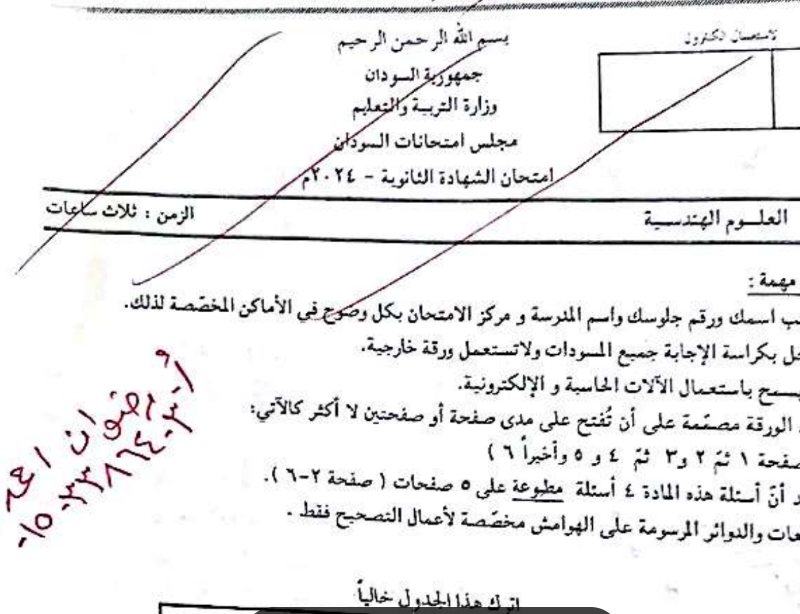 لاستعمال الكنترول
بسم الله الرحمن الرحيم
جمهورية السودان
وزارة التربية والتعليم
مجلس امتحانات السودان
امتحان الشهادة الثانوية - ٢٠٢٤م
العلوم الهندسية
الزمن : ثلاث ساعات
مهمة :
ب اسمك ورقم جلوسك واسم المدرسة و مركز الامتحان بكل وضوح في الأماكن المخصّصة لذلك.
حل بكراسة الإجابة جميع المسودات ولاتستعمل ورقة خارجية.
يسمح باستعمال الآلات الحاسبة و الإلكترونية.
الورقة مصمّمة على أن تُفتح على مدى صفحة أو صفحتين لا أكثر كالآتي:
صفحة ١ ثمّ ٢ و٣ ثمّ ٤ و ٥ وأخيراً ٦ )
أنّ أسئلة هذه المادة ٤ أسئلة مطبوعة على ٥ صفحات ( صفحة ٢-٦ ).
عات والدوائر المرسومة على الهوامش مخصّصة لأعمال التصحيح فقط .
أ. رضوان احمد
اترك هذا الجدول خالياً